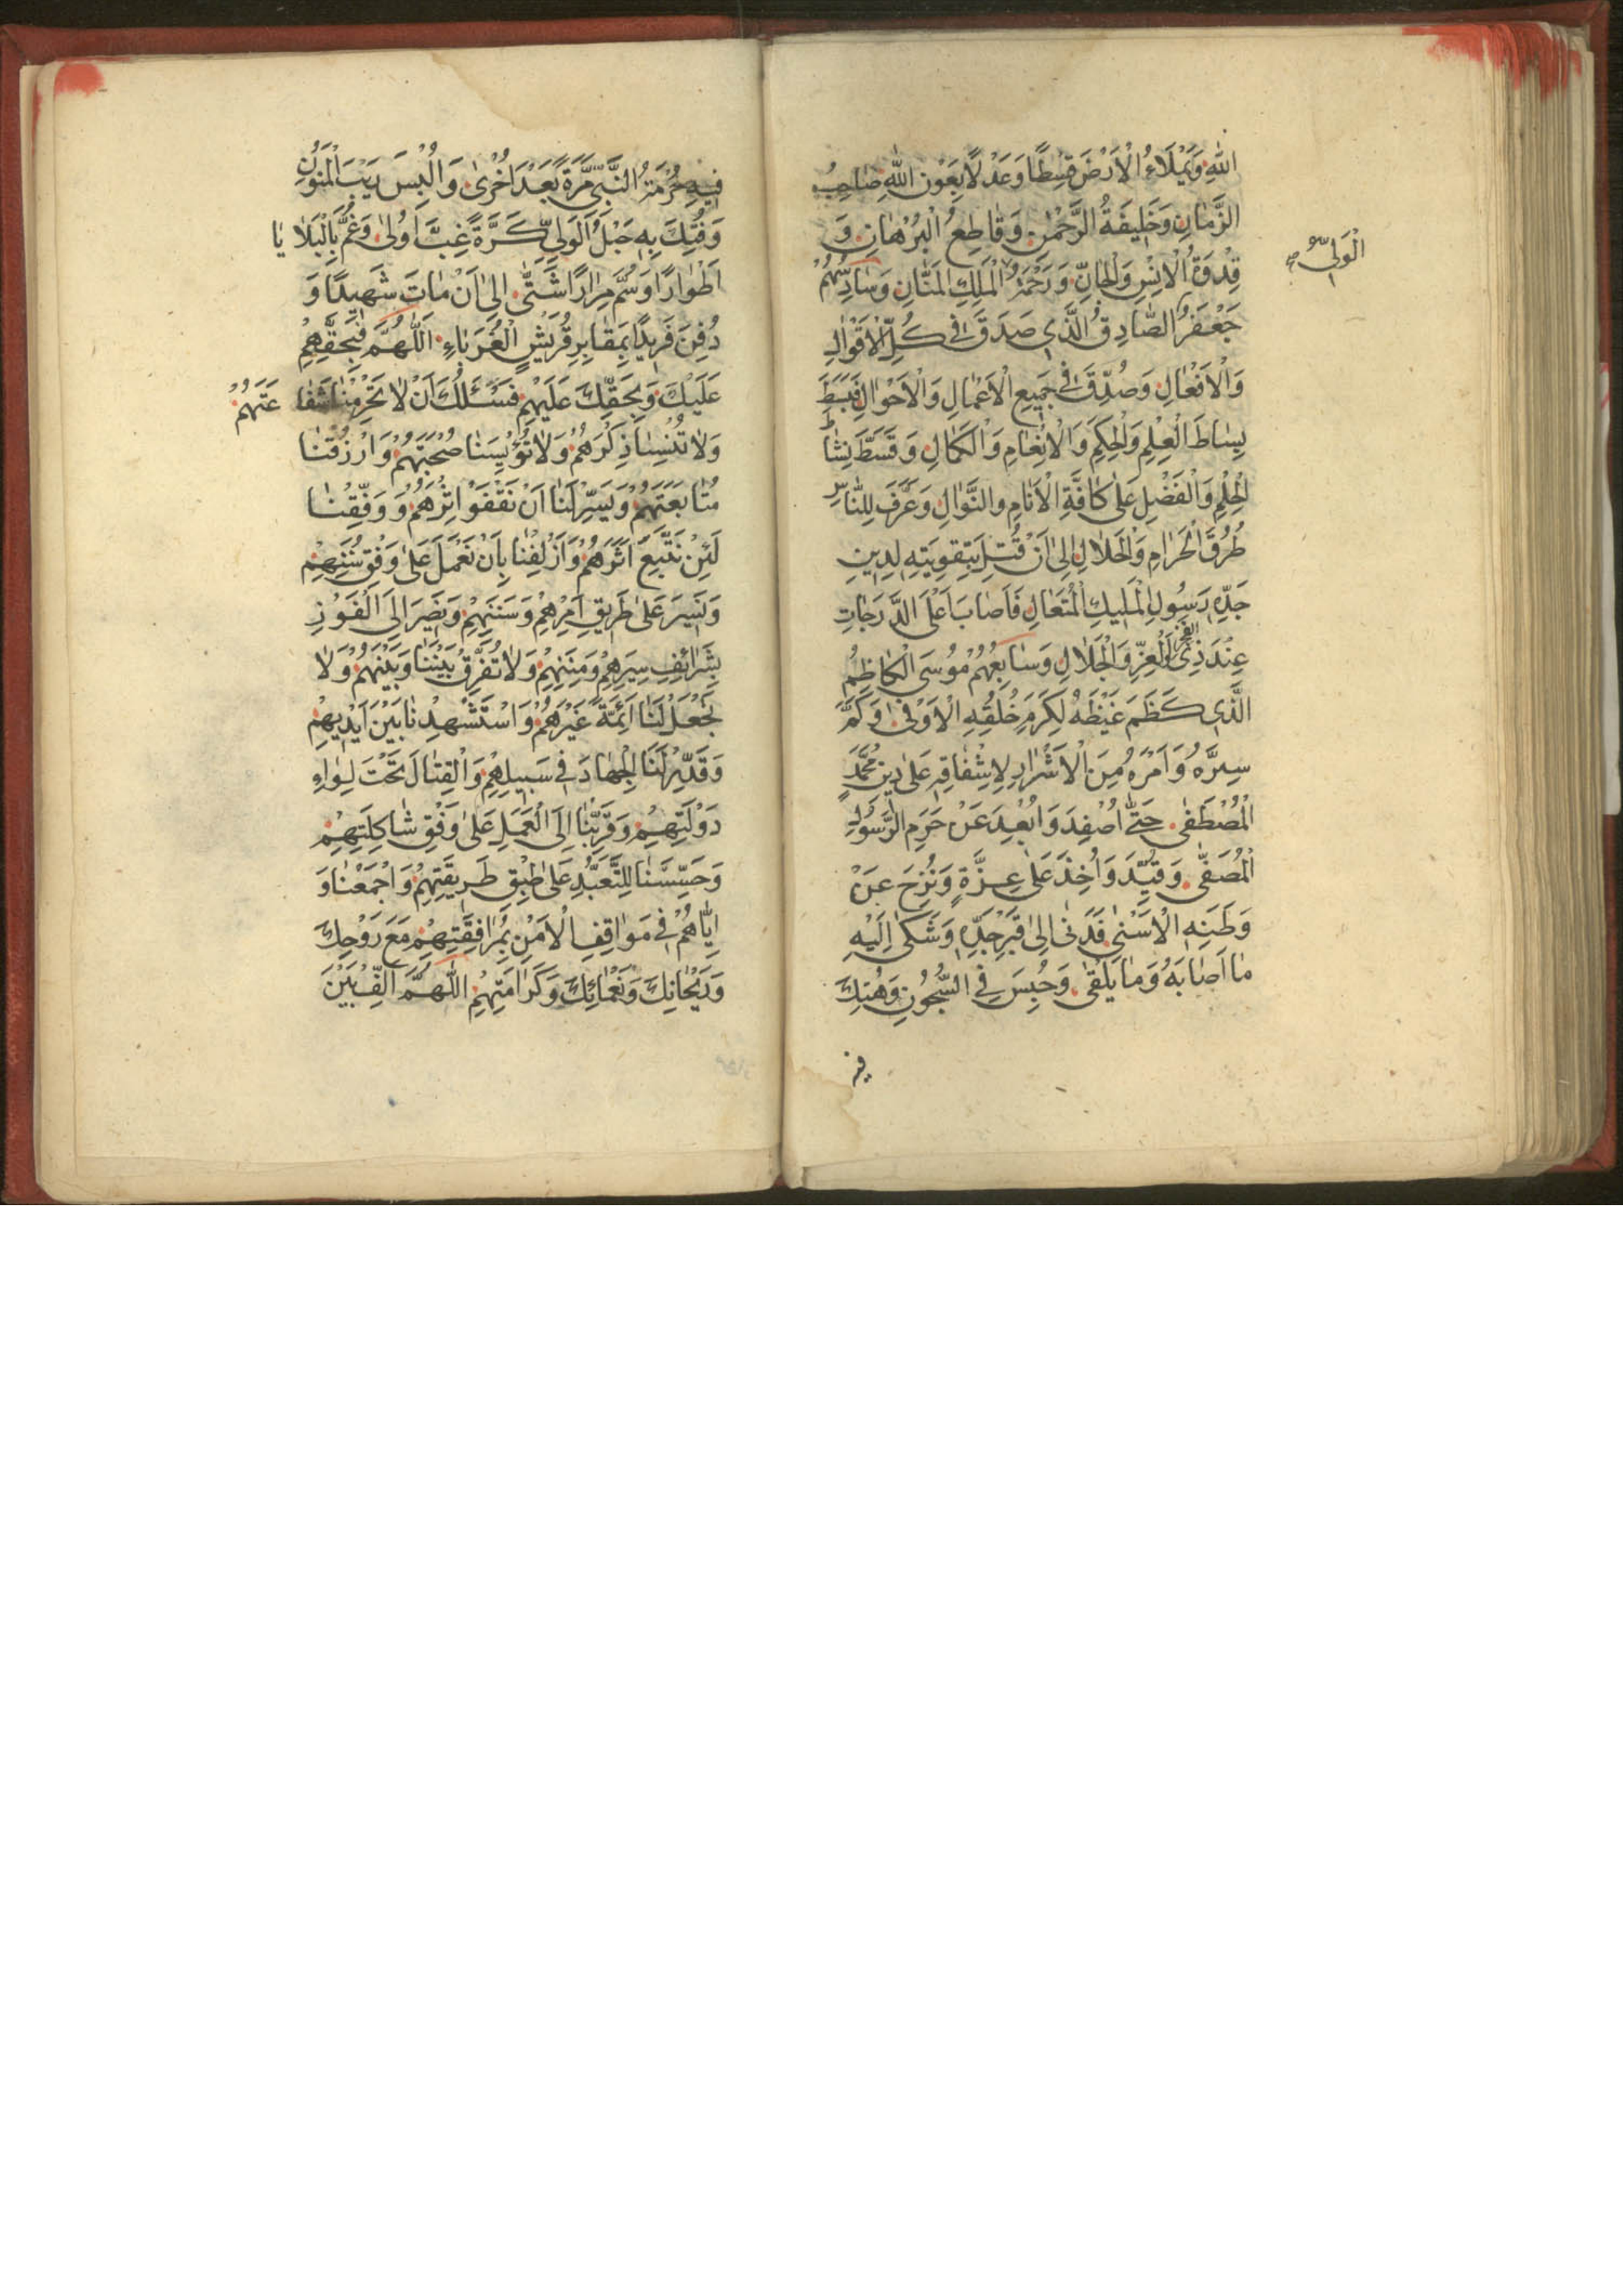 اللهِ وَيَمْلَاءُ الْاَرْضَ قِسْطًا وَعَدْلًا بِعَوْنِ اللهِ صَاحِبُ
الزَّمَانِ وَخَلِيفَةُ الرَّحْمٰنِ وَقَاطِعُ الْبُرْهَانِ وَ
الْوَلِيُّ
قِدْوَةُ الْاِنْسِ وَالْجَانِّ وَرَحْمَةُ الْمَلِكِ الْمَنَّانِ وَسَادِسُهُمْ
جَعْفَرُ الصَّادِقُ الَّذِى صَدَقَ فِى كُلِّ الْاَقْوَالِ
وَالْاَفْعَالِ وَصُدِّقَ فِى جَمِيعِ الْاَعْمَالِ وَالْاَحْوَالِ فَبَسَطَ
بِسَاطَ الْعِلْمِ وَالْحِكَمِ وَالْاِنْعَامِ وَالْكَمَالِ وَقَسَّطَ نِشَاطَ
الْحِلْمِ وَالْفَضْلِ عَلٰى كَافَّةِ الْاَنَامِ وَالنَّوَالِ وَعَرَّفَ لِلنَّاسِ
طُرُقَ الْحَرَامِ وَالْحَلَالِ اِلٰى اَنْ قُتِلَ بِتَقْوِيَتِهِ لِدِينِ
جَدِّهِ رَسُولِ الْمَلِيكِ الْمُتَعَالِ فَاَصَابَ اَعْلَى الدَّرَجَاتِ
عِنْدَ ذِى الْعِزِّ وَالْجَلَالِ وَسَابِعُهُمْ مُوسَى الْكَاظِمُ
الَّذِى كَظَمَ غَيْظَهُ لِكَرَمِ خُلُقِهِ الْاَوْفٰى وَكَتَمَ
سِرَّهُ وَاَمْرَهُ مِنَ الْاَشْرَارِ لِاِشْفَاقِهِ عَلٰى دِينِ مُحَمَّدٍ
الْمُصْطَفٰى حَتّٰى اُصْفِدَ وَاُبْعِدَ عَنْ حَرَمِ الرَّسُولِ
الْمُصَفّٰى وَقُيِّدَ وَاُخِذَ عَلٰى عِزَّةٍ وَنُزِحَ عَنْ
وَطَنِهِ الْاَسْنٰى فَدَنٰى اِلٰى قَبْرِ جَدِّهِ وَشَكٰى اِلَيْهِ
مَا اَصَابَهُ وَمَا يَلْقٰى وَحُبِسَ فِى السُّجُونِ وَهُتِكَ
فيه
فِيهِ حُرْمَةُ النَّبِىِّ مَرَّةً بَعْدَ اُخْرٰى وَاُلْبِسَ رَيْبَ الْمَنُونِ
وَفُتِكَ بِهِ حَبْلُ الْوَلِىِّ كَرَّةً غِبَّ اُولٰى وَغُمَّ بِالْبَلَايَا
اَطْوَارًا وَسُمَّ مِرَارًا شَتّٰى اِلٰى اَنْ مَاتَ شَهِيدًا وَ
دُفِنَ فَرِيدًا بِمَقَابِرِ قُرَيْشٍ الْغُرَبَاءِ اَللّٰهُمَّ فَبِحَقِّهِمْ
عَلَيْكَ وَبِحَقِّكَ عَلَيْهِمْ نَسْئَلُكَ اَنْ لَا تَحْرِمْنَا شَفَاعَتَهُمْ
وَلَا تُنْسِنَا ذِكْرَهُمْ وَلَا تُؤْيِسَنَا صُحْبَتَهُمْ وَارْزُقْنَا
مُتَابَعَتَهُمْ وَيَسِّرْ لَنَا اَنْ نَقْفُوَ اِثْرَهُمْ وَوَفِّقْنَا
لَئِنْ نَتَّبِعَ اَثَرَهُمْ وَاَزْلِفْنَا بِاَنْ نَعْمَلَ عَلٰى وَفْقِ سُنَنِهِمْ
وَنَسِيرَ عَلٰى طَرِيقِ اَمْرِهِمْ وَسَنَنِهِمْ وَنَصِيرَ اِلَى الْفَوْزِ
بِشَرَائِفِ سِيَرِهِمْ وَمِنَنِهِمْ وَلَا تُفَرِّقْ بَيْنَنَا وَبَيْنَهُمْ وَلَا
تَجْعَلْ لَنَا اَئِمَّةً غَيْرَهُمْ وَاسْتَشْهِدْنَا بَيْنَ اَيْدِيهِمْ
وَقَدِّرْ لَنَا الْجِهَادَ فِى سَبِيلِهِمْ وَالْقِتَالَ تَحْتَ لِوَاءِ
دَوْلَتِهِمْ وَقَرِّبْنَا اِلَى الْعَمَلِ عَلٰى وَفْقِ شَاكِلَتِهِمْ
وَحَسِّسْنَا لِلتَّعَبُّدِ عَلٰى طِبْقِ طَرِيقَتِهِمْ وَاجْمَعْنَا وَ
اِيَّاهُمْ فِى مَوَاقِفِ الْاَمْنِ بِمُرَافِقَتِهِمْ مَعَ رَوْحِكَ
وَرَيْحَانِكَ وَنَعْمَائِكَ وَكَرَامَتِهِمْ اَللّٰهُمَّ اَلِّفْ بَيْنَ